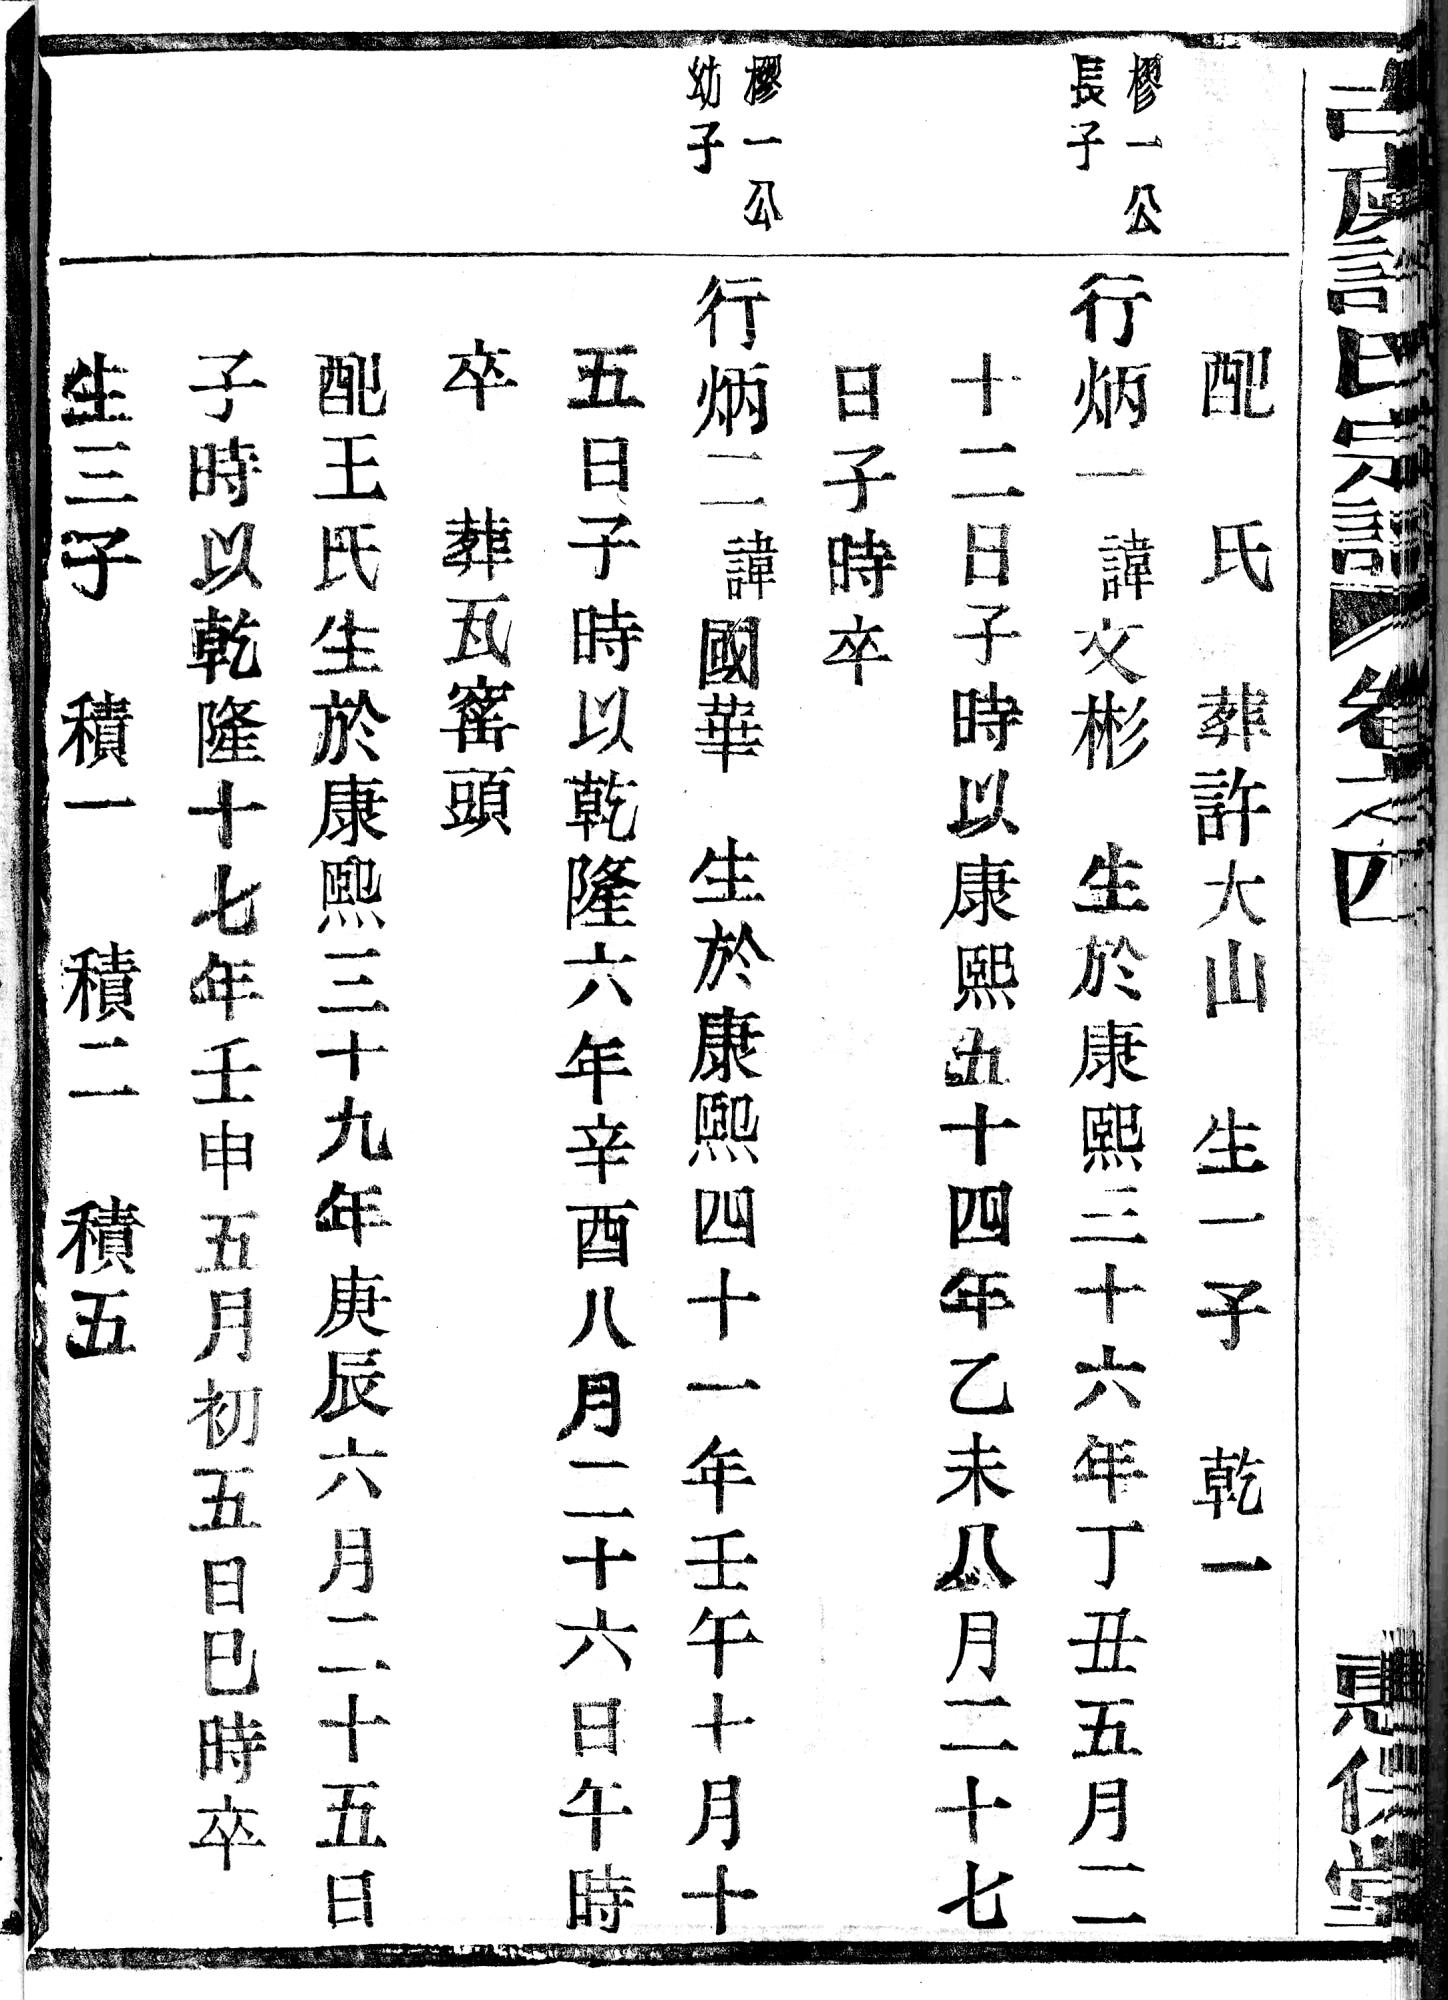 許氏宗譜 卷之四
配 氏 葬許大山 生一子 乾一
樛一公
長子
行炳一 諱文彬 生於康熙三十六年丁丑五月二
十二日子時以康熙五十四年乙未八月二十七
日子時卒
樛一公
幼子
行炳二 諱國華 生於康熙四十一年壬午十月十
五日子時以乾隆六年辛酉八月二十六日午時
卒 葬瓦窰頭
配王氏生於康熙三十九年庚辰六月二十五日
子時以乾隆十七年壬申五月初五日巳時卒
生三子 積一 積二 積五